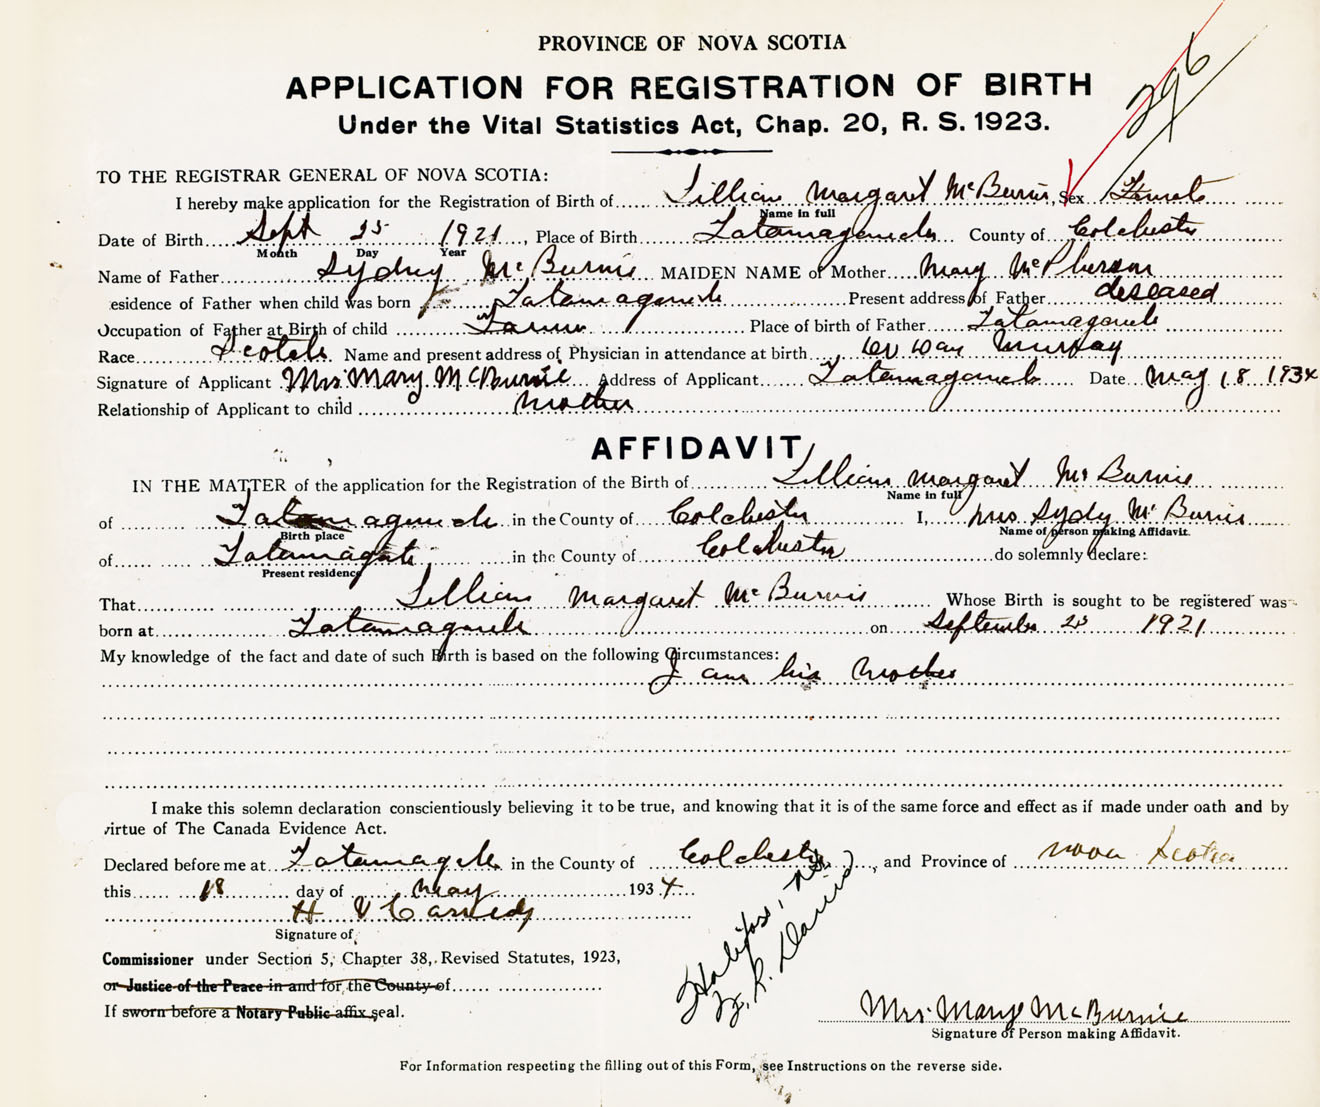 PROVINCE OF NOVA SCOTIA
296
APPLICATION FOR REGISTRATION OF BIRTH
Under the Vital Statistics Act, Chap. 20, R. S. 1923.
TO THE REGISTRAR GENERAL OF NOVA SCOTIA:
I hereby make application for the Registration of Birth of Lillian Margaret McBurnie, Sex Female
Name in full
Date of Birth Sept 25 1921, Place of Birth Tatamagouche County of Colchester
Month Day Year
Name of Father Sydney McBurnie MAIDEN NAME of Mother Mary McPherson
esidence of Father when child was born Tatamagouche Present address of Father deseased
Occupation of Father at Birth of child Farmer Place of birth of Father Tatamagouche
Race Scotch. Name and present address of Physician in attendance at birth Dr Dan Murray
Signature of Applicant Mrs. Mary McBurnie Address of Applicant Tatamagouche Date May 18 1934
Relationship of Applicant to child mother
AFFIDAVIT
IN THE MATTER of the application for the Registration of the Birth of Lillian Margaret McBurnie
Name in full
of Tatamagouche in the County of Colchester I, Mrs Sydy McBurnie
Birth place Name of person making Affidavit.
of in the County of Colchester do solemnly declare:
Present residence
That Lillian Margaret McBurnie Whose Birth is sought to be registered was
born at Tatamagouche on September 25 1921
My knowledge of the fact and date of such Birth is based on the following Circumstances:
I am his Mother
I make this solemn declaration conscientiously believing it to be true, and knowing that it is of the same force and effect as if made under oath and by
virtue of The Canada Evidence Act.
Declared before me at in the County of Colchester, and Province of Nova Scotia
this 18 day of May 1934
H V Cassidy
Signature of
Commissioner under Section 5, Chapter 38, Revised Statutes, 1923,
or Justice of the Peace in and for the County of
If sworn before a Notary Public affix seal.
Halifax, N.S.
Mrs. Mary McBurnie
Signature of Person making Affidavit.
For Information respecting the filling out of this Form, see Instructions on the reverse side.